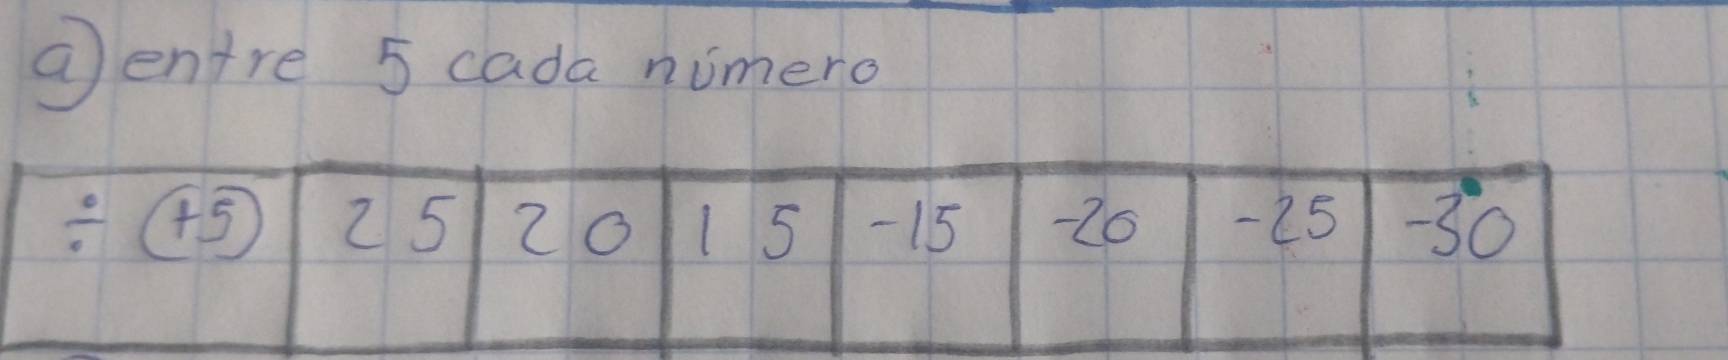 a) entre 5 cada número
÷ (+5) 25 20 15 -15 -20 -25 -30